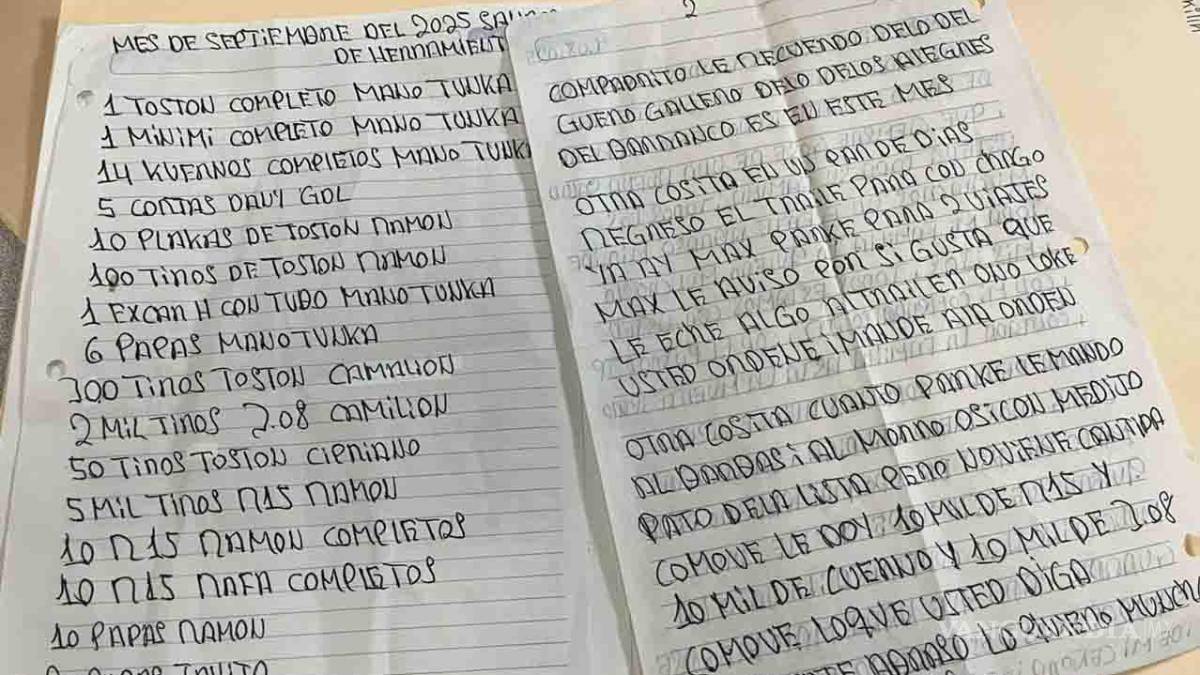 MES DE SEPTIEMBRE DEL 2025
DE HERRAMIENT
1 TOSTON COMPLETO MANO TURKA
1 MINIMI COMPLETO MANO TURKA
14 KUERNOS COMPLETOS MANO TURKA
5 CORTAS GOL
10 PLAKAS DE TOSTON RAMON
100 TIROS DE TOSTON RAMON
1 EXCAR H CON TUBO MANO TURKA
6 PAPAS MANO TURKA
300 TIROS TOSTON CAMALION
2 MIL TIROS 3.08 CAMILION
50 TIROS TOSTON CIPRIANO
5 MIL TIROS R15 RAMON
10 R15 RAMON COMPLETOS
10 R15 RAFA COMPLETOS
10 PAPAS RAMON
2
COMPADRITO LE RECUERDO DELO DEL
GUERO GALLERO DELO DELOS ALEGRES
DEL BARRANCO ES EN ESTE MES
OTRA COSITA EN US PAR DE DIAS
REGRESO EL TRAILE PARA CON CHAGO
YA AY MAX PARKE PARA 2 VIAJES
MAX LE AVISO POR SI GUSTA QUE
LE ECHE ALGO AL TRAILER ONO LOKE
USTED ORDENE I MANDE AIA ORDEN
OTRA COSITA CUANTO PARKE LE MANDO
AL BARBAS I AL MORRO OSICON MEDIJO
PATO DELA LISTA PERO NOVIENE CANTIDA
COMOVE LE DOY 10 MIL DE R15 Y
10 MIL DE CUERNO Y 10 MIL DE 308
COMOVE LOQUE USTED DIGA
ABRASO LO QUERO MUNCH
VANGUARDIA MX